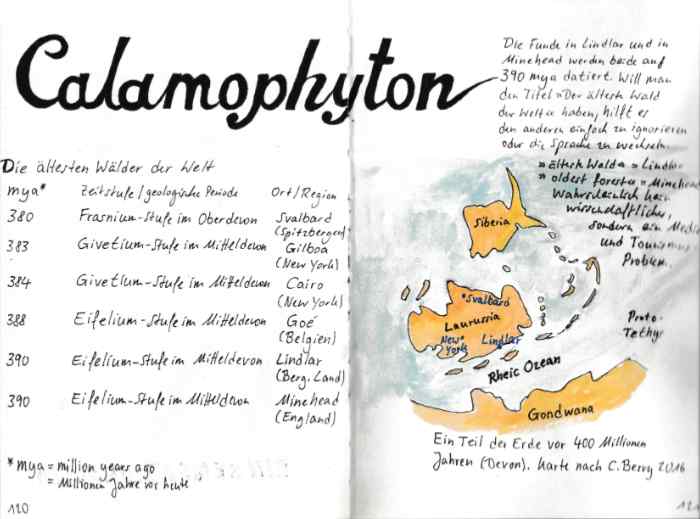 Calamophyton
Die ältesten Wälder der Welt
mya* Zeitstufe/geologische Periode Ort/Region
380 Frasnium-Stufe im Oberdevon Svalbard
(Spitzbergen)
383 Givetium-Stufe im Mitteldevon Gilboa
(New York)
384 Givetium-Stufe im Mitteldevon Cairo
(New York)
388 Eifelium-Stufe im Mitteldevon Goé
(Belgien)
390 Eifelium-Stufe im Mitteldevon Lindlar
(Berg. Land)
390 Eifelium-Stufe im Mitteldevon Minehead
(England)
* mya = million years ago
= Millionen Jahre vor heute
120
Die Funde in Lindlar und in
Minehead werden beide auf
390 mya datiert. Will man
den Titel »Der älteste Wald
der Welt« haben, hilft es
den anderen einfach zu ignorieren
oder die Sprache zu wechseln.
»älteste Wald« = Lindlar
»oldest forest« = Minehead
Wahrscheinlich kein
wirtschaftliches,
sondern ein Medien
und Tourismus
Problem.
Siberia
Svalbard
Laurussia
New York
Lindlar
Proto-
Tethys
Rheic Ozean
Gondwana
Ein Teil der Erde vor 400 Millionen
Jahren (Devon). Karte nach C. Berry 2016
121